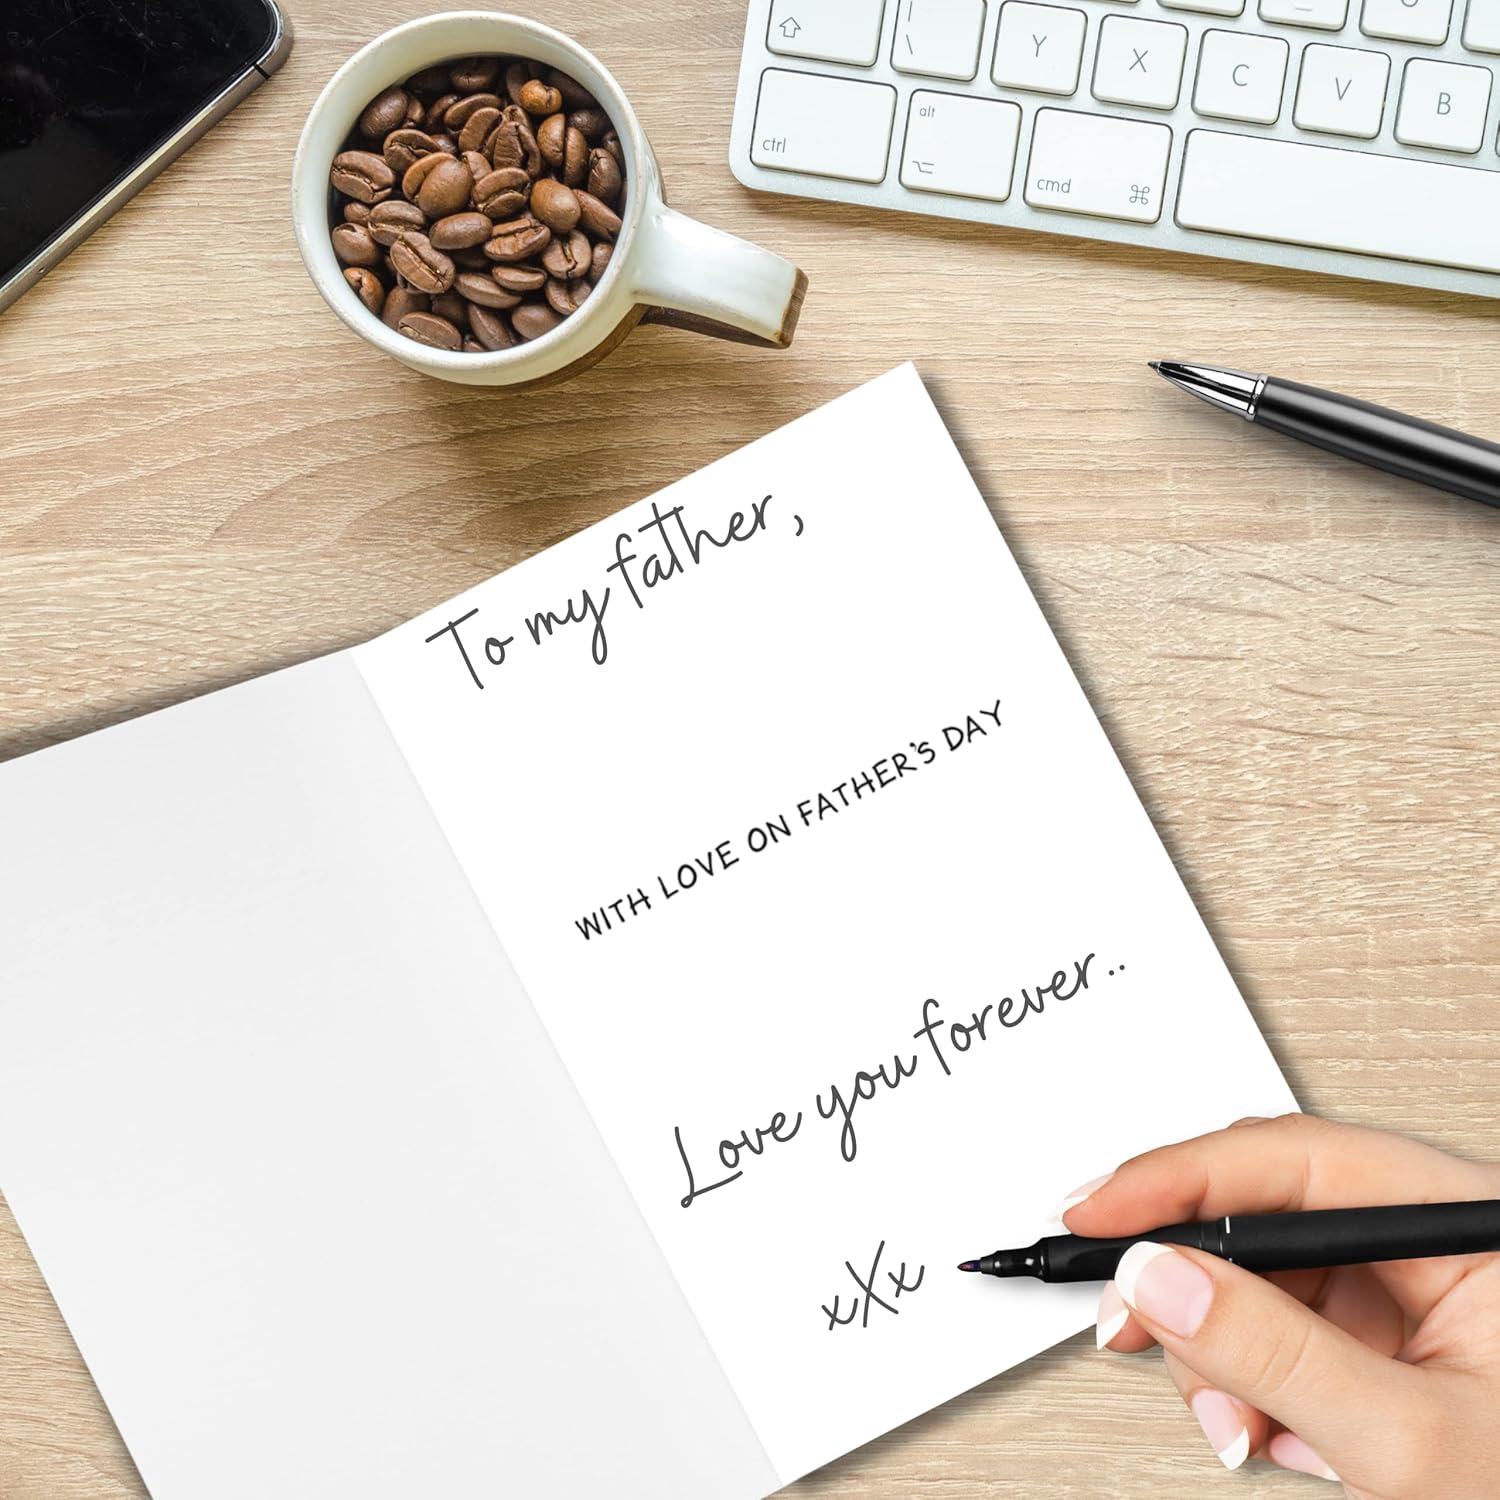 \
Y X C V B
alt
ctrl
cmd ⌘
To my father,
WITH LOVE ON FATHER'S DAY
Love you forever..
xXx